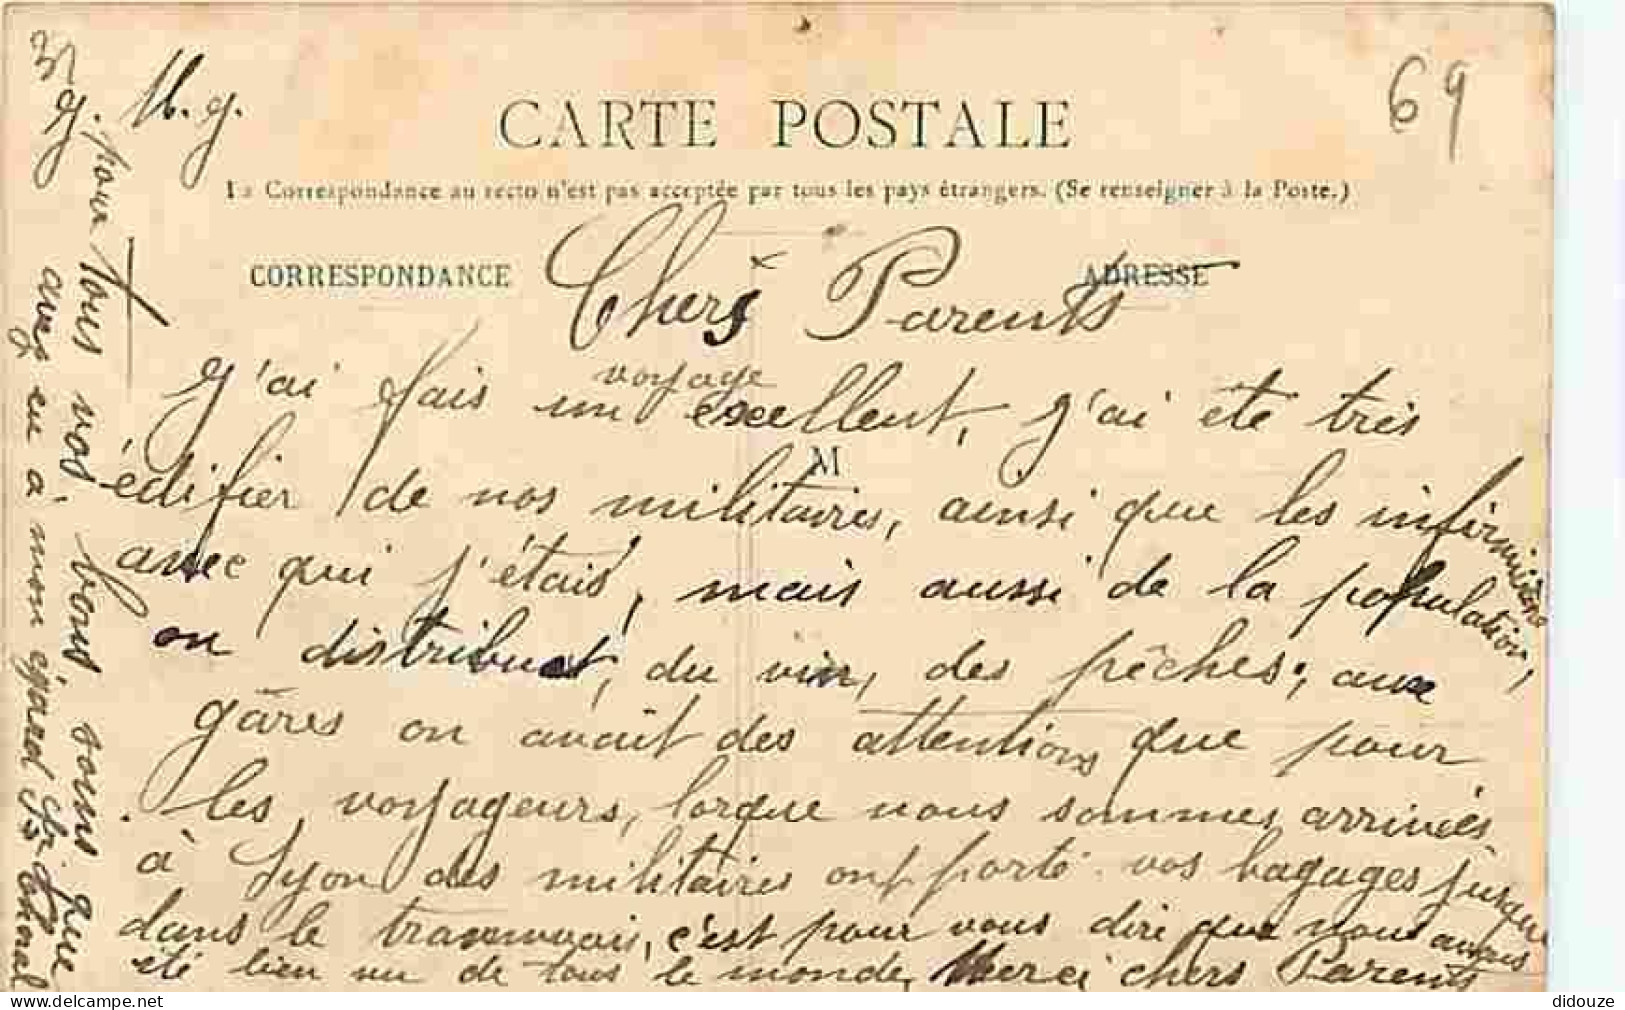 M. G.
69
CARTE POSTALE
La Correspondance au recto n'est pas acceptée par tous les pays étrangers. (Se renseigner à la Poste.)
CORRESPONDANCE
ADRESSE
Chers Parents
J'ai fais un voyage excellent, j'ai été très
M
édifier de nos militaires, ainsi que les infirmières
avec qui j'étais, mais aussi de la population,
on distribuet, du vin, des pêches, aux
gâres on avait des attentions que pour
les voyageurs, lorque nous sommes arrivés
à Lyon des militaires ont porté vos bagages jusque
dans le tramwais, c'est pour vous dire que nous avons
été bien vu de tous le monde, Merci chers Parents
pour tous vos bons soins que
avez eu à mon égard
didouze